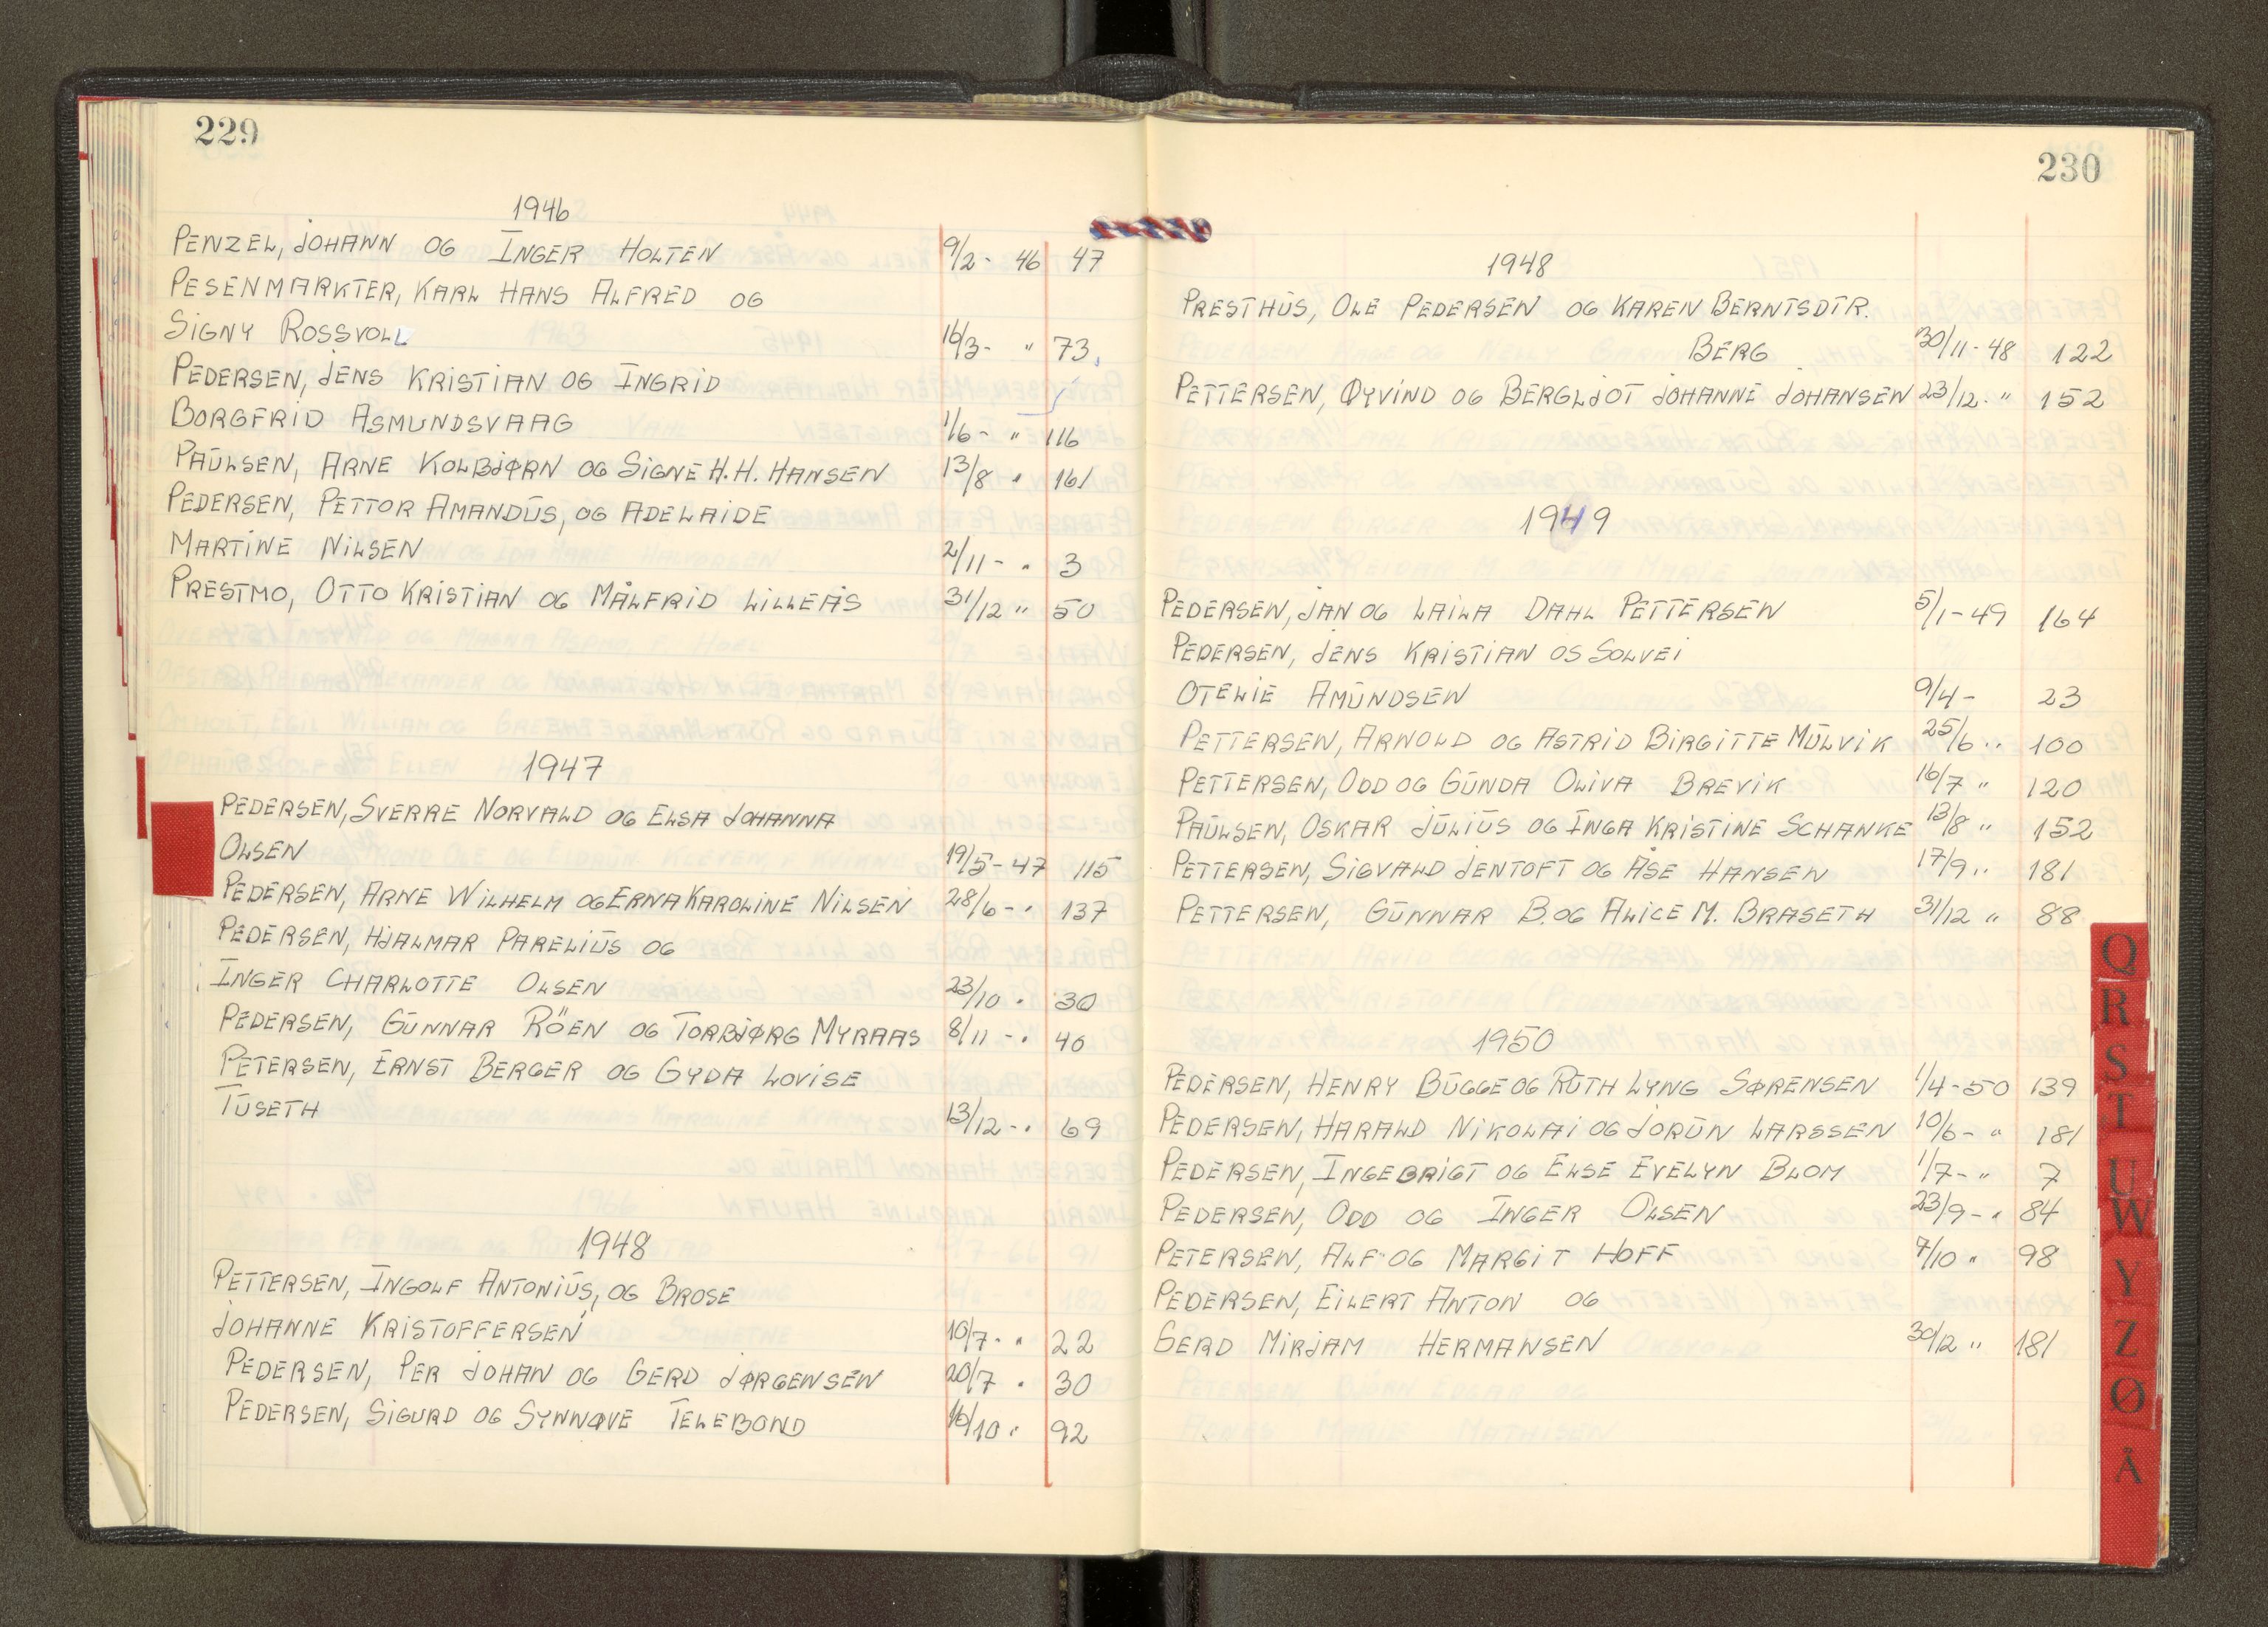 229
1946
PENZEL, JOHANN OG INGER HOLTEN 9/2 - 46 47
PESENMARKTER, KARL HANS ALFRED OG
SIGNY ROSSVOLL 16/3 - " 73
PEDERSEN, JENS KRISTIAN OG INGRID
BORGFRID ASMUNDSVAAG 1/6 - " 116
PAULSEN, ARNE KOLBJØRN OG SIGNE H.H. HANSEN 13/8 " 161
PEDERSEN, PETTOR AMANDUS, OG ADELAIDE
MARTINE NILSEN 2/11 - " 3
PRESTMO, OTTO KRISTIAN OG MÅLFRID LILLEÅS 31/12 " 50
1947
PEDERSEN, SVERRE NORVALD OG ELSA JOHANNA
OLSEN 19/5 - 47 115
PEDERSEN, ARNE WILHELM OG ERNA KAROLINE NILSEN 28/6 - " 137
PEDERSEN, HJALMAR PARELIUS OG
INGER CHARLOTTE OLSEN 23/10 " 30
PEDERSEN, GUNNAR RÖEN OG TORBJØRG MYRAAS 8/11 - " 40
PETERSEN, ERNST BERGER OG GYDA LOVISE
TUSETH 13/12 - " 69
1948
PETTERSEN, INGOLF ANTONIUS, OG BROSE
JOHANNE KRISTOFFERSEN 10/7 - " 22
PEDERSEN, PER JOHAN OG GERD JØRGENSEN 20/7 " 30
PEDERSEN, SIGURD OG SYNNØVE TELEBOND 16/10 " 92
230
1948
PRESTHUS, OLE PEDERSEN OG KAREN BERNTSDTR.
BERG 30/11 - 48 122
PETTERSEN, ØYVIND OG BERGLJOT JOHANNE JOHANSEN 23/12 - " 152
1949
PEDERSEN, JAN OG LAILA DAHL PETTERSEN 5/1 - 49 164
PEDERSEN, JENS KRISTIAN OS SOLVEI
OTELIE AMUNDSEN 9/4 - 23
PETTERSEN, ARNOLD OG ASTRID BIRGITTE MULVIK 25/6 " 100
PETTERSEN, ODD OG GUNDA OLIVA BREVIK 16/7 " 120
PAULSEN, OSKAR JULIUS OG INGA KRISTINE SCHANKE 13/8 " 152
PETTERSEN, SIGVALD JENTOFT OG ÅSE HANSEN 17/9 " 181
PETTERSEN, GUNNAR B. OG ALICE M. BRASETH 31/12 " 88
1950
PEDERSEN, HENRY BUGGE OG RUTH LYNG SØRENSEN 1/4 - 50 139
PEDERSEN, HARALD NIKOLAI OG JORUN LARSSEN 10/6 - " 181
PEDERSEN, INGEBRIGT OG ELSE EVELYN BLOM 1/7 - " 7
PEDERSEN, ODD OG INGER OLSEN 23/9 - " 84
PETERSEN, ALF OG MARGIT HOFF 7/10 " 98
PEDERSEN, EILERT ANTON OG
GERD MIRJAM HERMANSEN 30/12 " 181
Q
R
S
T
U
W
Y
Z
Ø
Å